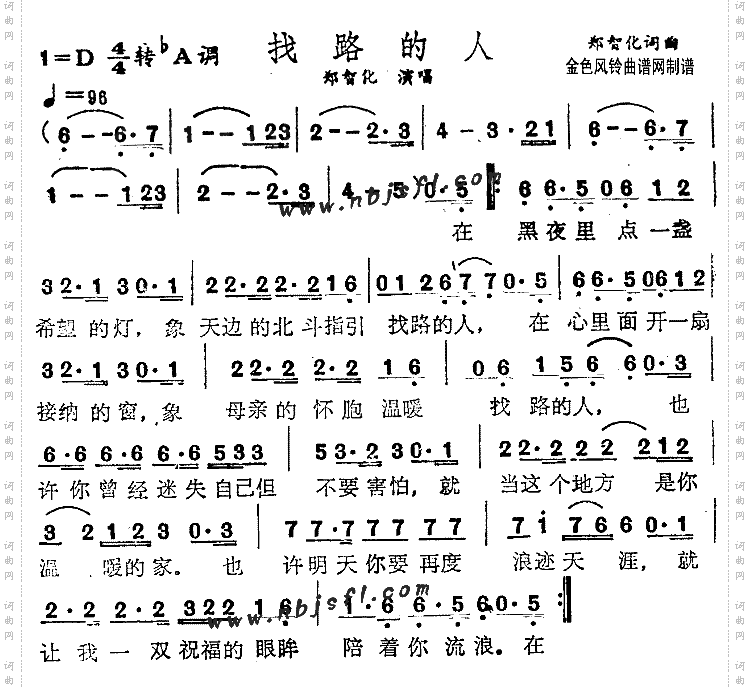 1=D 4/4 转 ♭A调 找路的人 郑智化词曲
郑智化 演唱 金色风铃曲谱网制谱
♩=96
(6 - - 6·7 | 1 - - 123 | 2 - - 2·3 | 4 - 3·21 | 6 - - 6·7 |
1 - - 123 | 2 - - 2·3 | 4 5 0·5 :| 6 6·5 06 12
www.nbjsfl.com
在 黑夜里 点一盏
32·1 30·1 | 22·22·216 | 0126 770·5 | 66·50612 |
希望的灯，象 天边的北斗指引 找路的人，在 心里面开一扇
32·1 30·1 | 22·2 2·2 16 | 06 156 60·3 |
接纳的窗，象 母亲的怀胞温暖 找路的人，也
6·6 6·6 6·6 533 | 53·2 30·1 | 22·22 2 212 |
许你曾经迷失自己但 不要害怕，就 当这个地方 是你
3 2 123 0·3 | 77 7·7 77 77 | 7i 766 0·0 |
温 暖的家。也 许明天你要再度 浪迹天涯，就
2·2 2·2 322 16 | 1·6 6·5 60·5 :|
www.nbjsfl.com
让我一双祝福的眼眸 陪着你流浪。在
词曲网
词曲网